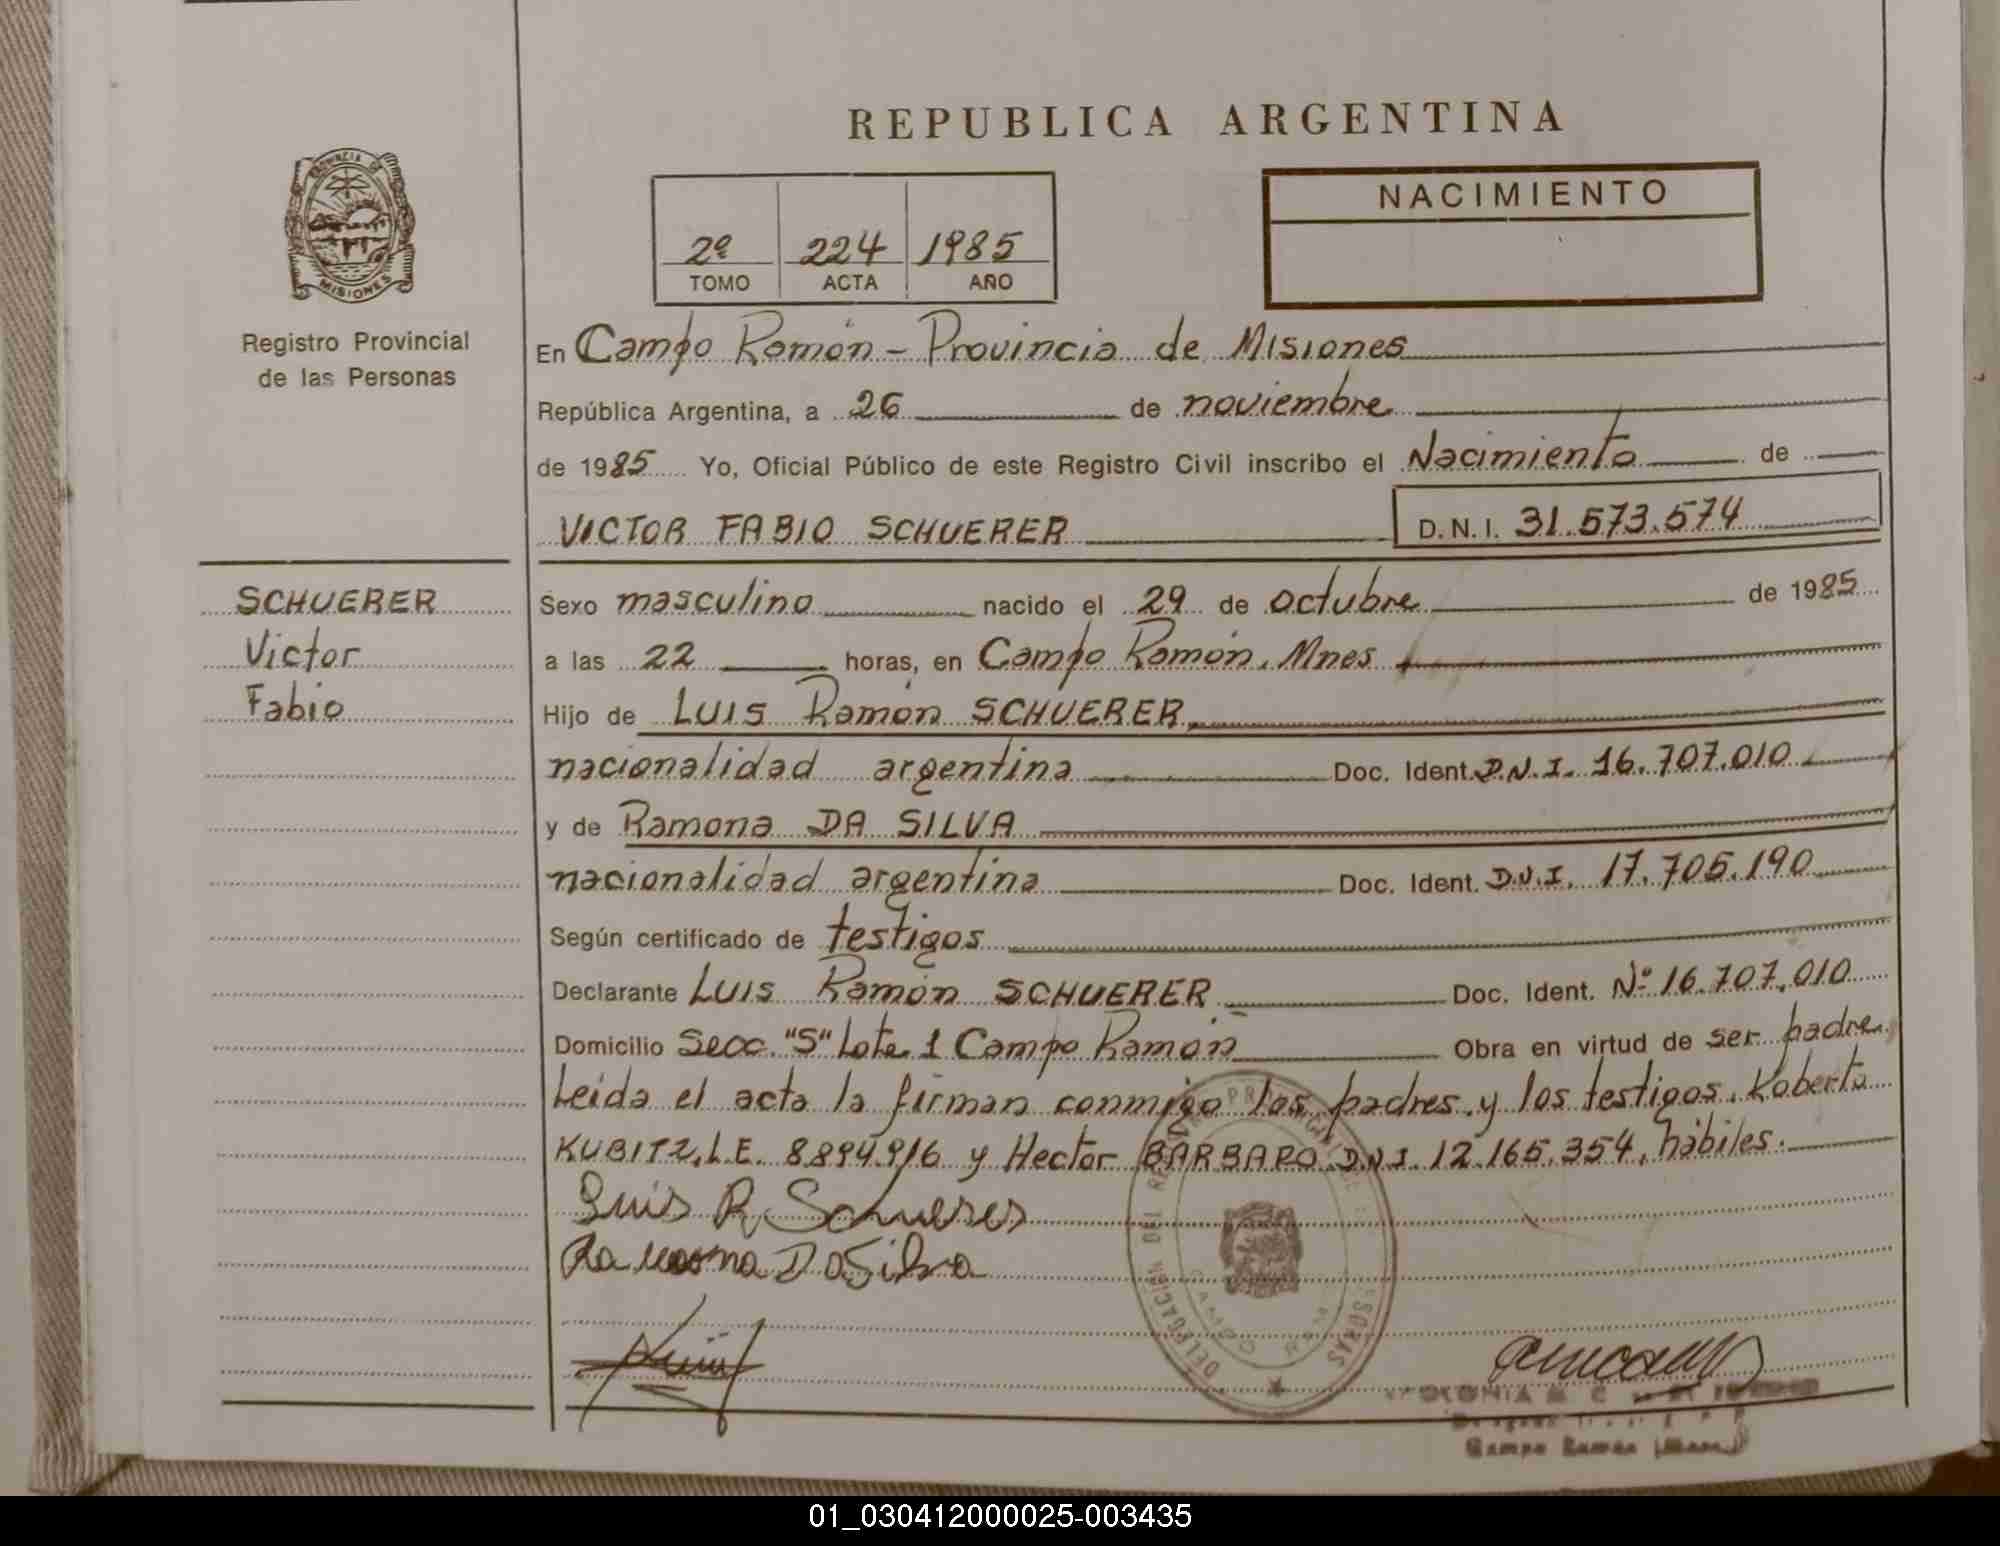 REPUBLICA ARGENTINA
PROVINCIA DE
MISIONES
Registro Provincial
de las Personas
2º 224 1985
TOMO ACTA AÑO
NACIMIENTO
En Campo Ramón - Provincia de Misiones
República Argentina, a 26 de noviembre
de 1985 Yo, Oficial Público de este Registro Civil inscribo el Nacimiento de
VICTOR FABIO SCHUERER D.N.I. 31.573.574
SCHUERER
Victor
Fabio
Sexo masculino nacido el 29 de octubre de 1985
a las 22 horas, en Campo Ramón, Mnes
Hijo de LUIS Ramón SCHUERER,
nacionalidad argentina Doc. Ident. D.N.I. 16.707.010
y de Ramona DA SILVA
nacionalidad argentina Doc. Ident. D.N.I. 17.705.190
Según certificado de testigos
Declarante LUIS Ramón SCHUERER Doc. Ident. Nº 16.707.010
Domicilio Secc. "S" Lote 1 Campo Ramón Obra en virtud de ser padre
Leída el acta la firman conmigo los padres y los testigos, Roberto
KUBITZ, L.E. 8.894.916 y Hector BARBARO D.N.I. 12.165.354, hábiles.
Luis R Schuerer
Ramona Da Silva
DELEGACION DEL
CAMPO RAM
Campo Ramón
01_030412000025-003435